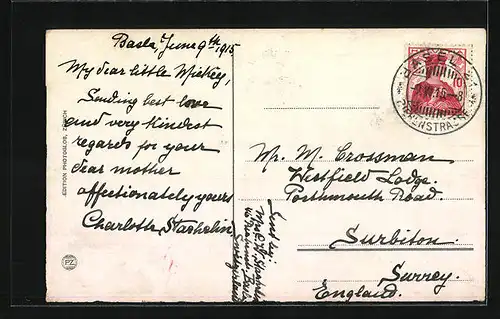 Basle, June 9th 1915
My dear little Mickey,
Sending best love
and very kindest
regards for your
dear mother
affectionately yours
Charlotte Staehelin
EDITION PHOTOGLOB, ZÜRICH
PZ
BASEL
10
Mr. M. Crossman
Westfield Lodge.
Porthmouth Road.
Surbiton
Surrey.
England.
Sent by:
Switzerland